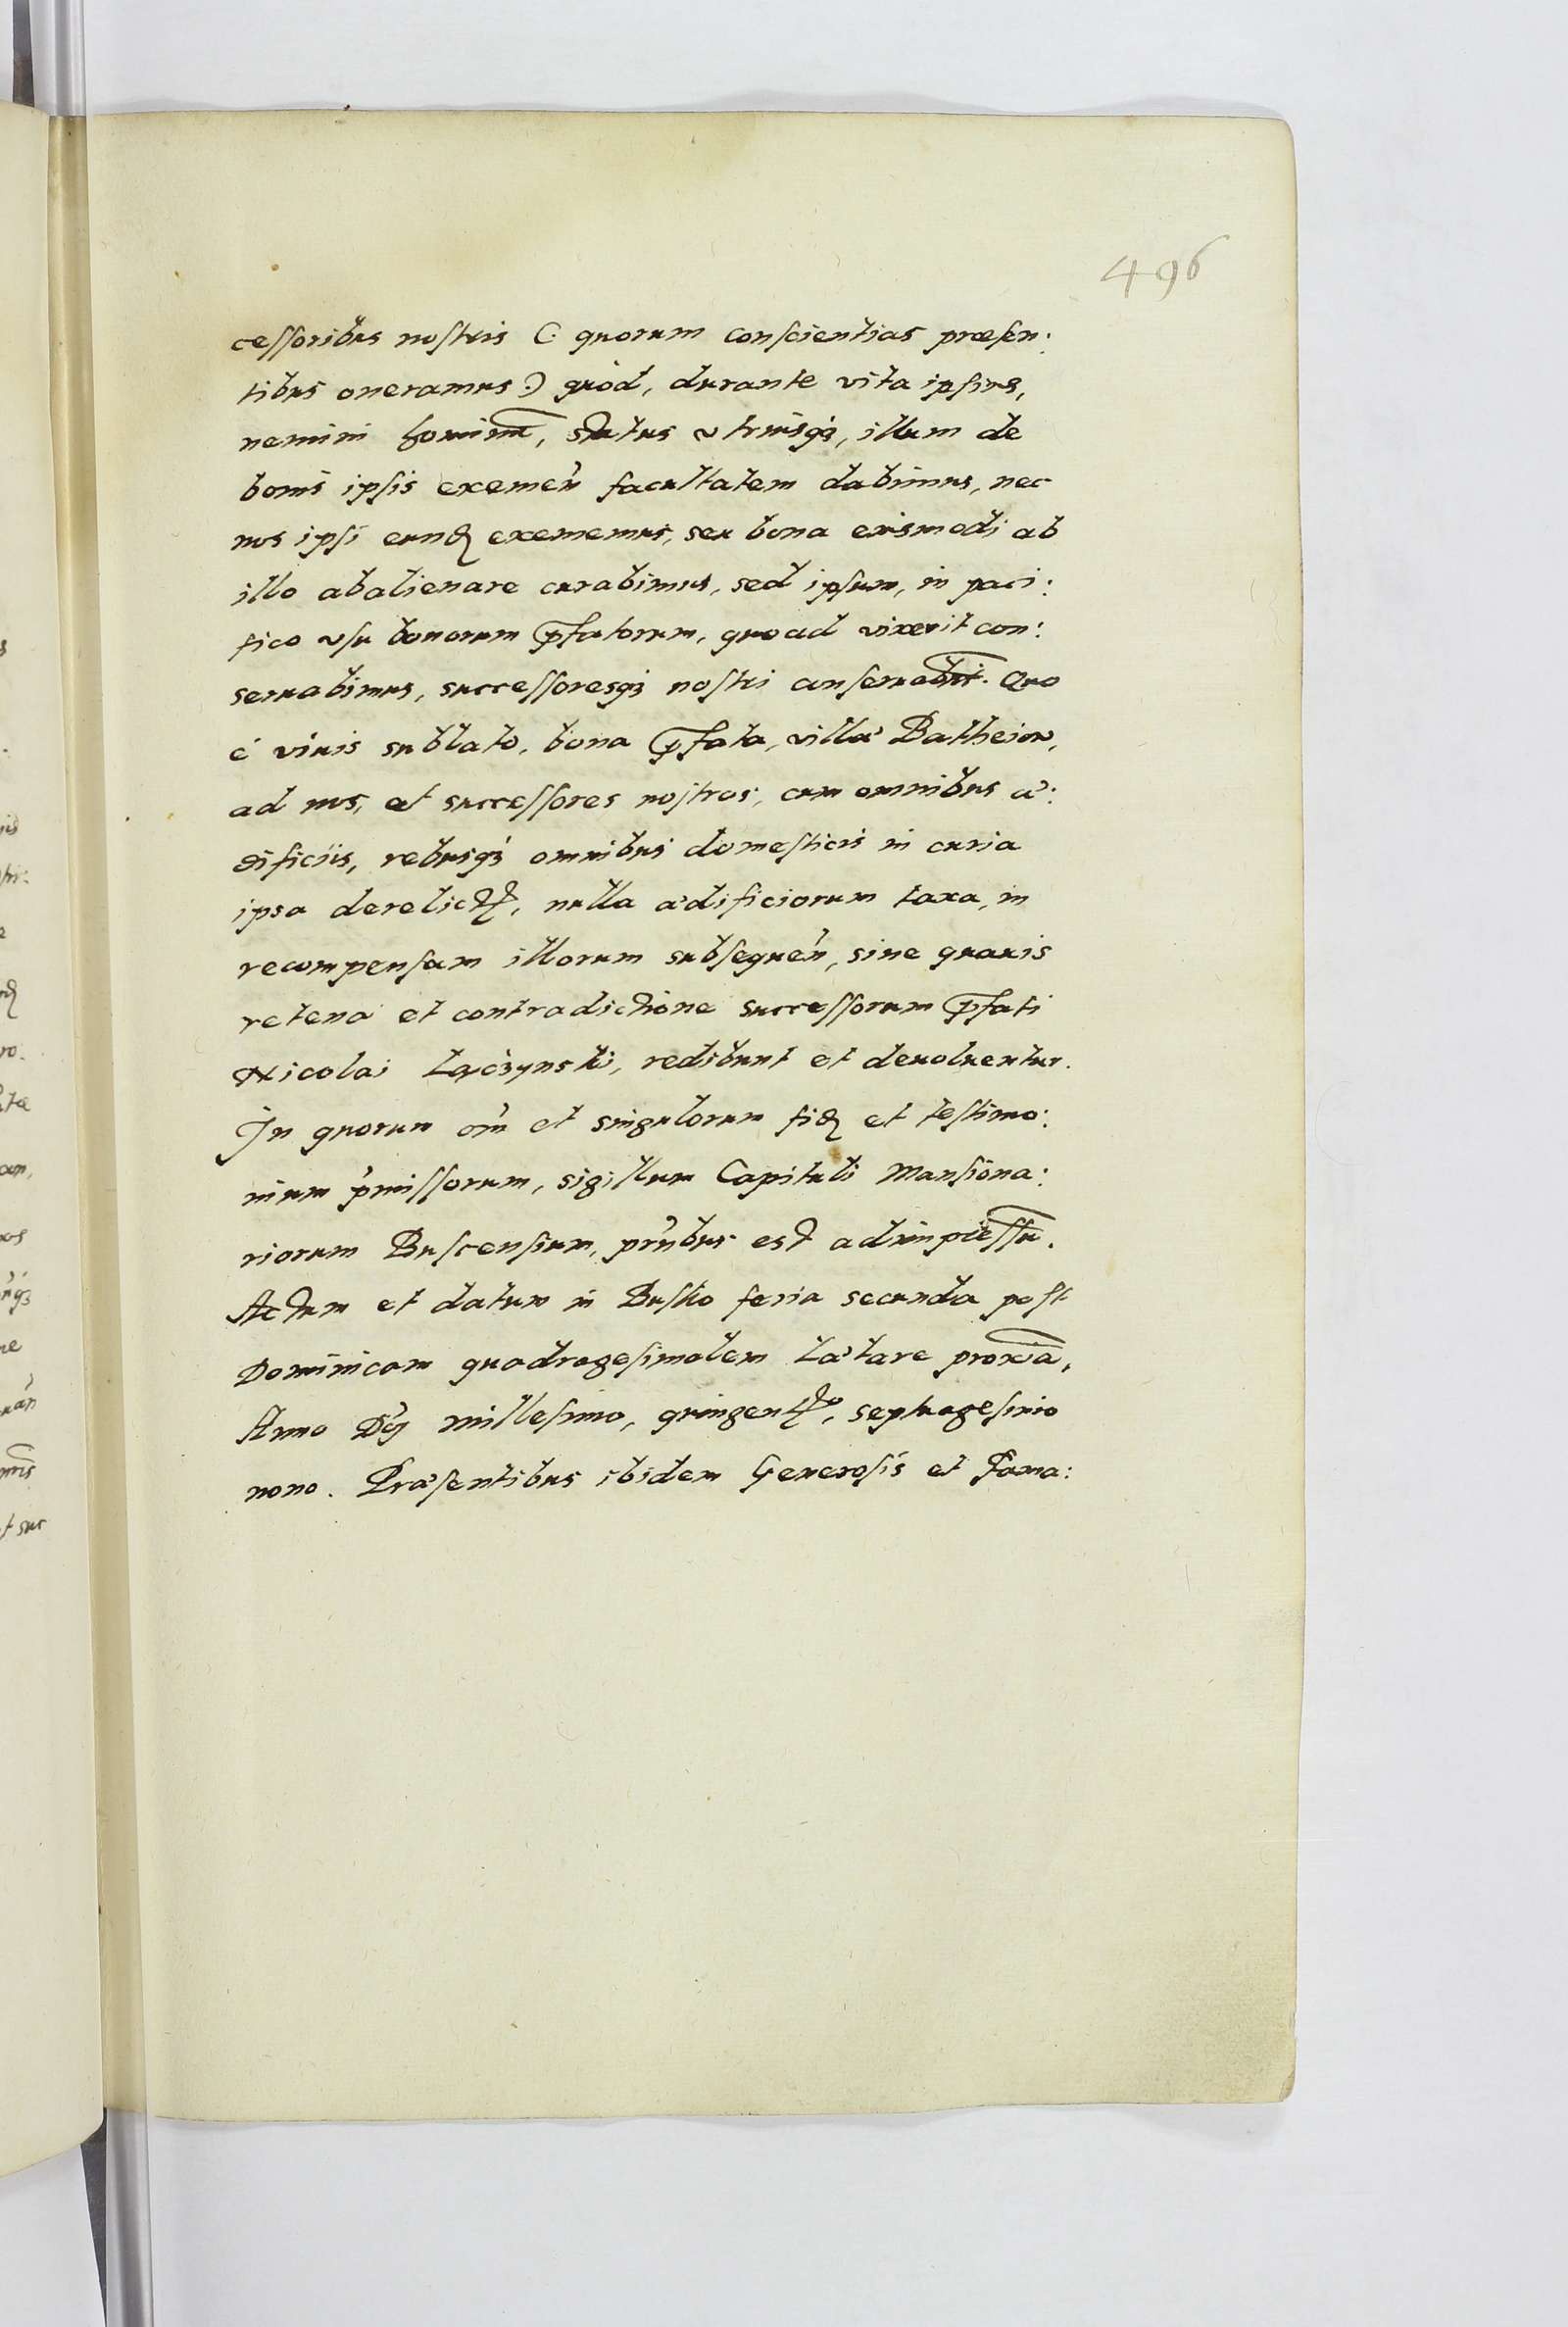 496
cessoribus nostris (: quorum conscientias præsen:
tibus oneramus:) quod, durante vita ipsius,
nemini hominũ, status vtriusq3, illum de
bonis ipsis exemeñ facultatem dabimus, nec
nos ipsi eund exememus, seu bona eiusmodi ab
illo abalienare curabimus, sed ipsum, in paci:
fico vsu bonorum pfatorum, quoad vixerit con:
seruabimus, successoresq3 nostri conseruabũt. Quo
è viuis sublato, bona pfata, villæ Batheiow,
ad nos, et successores nostros, cum omnibus æ:
dificiis, rebusq3 omnibus domesticis in curia
ipsa derelict, nulla ædificiorum taxa, in
recompensam illorum subsequeñ, sine quauis
retena et contradictione successorum pfati
Nicolai Łączynski, redibunt et deuoluentur.
In quorum om̃ et singulorum fid et testimo:
nium p̃missorum, sigillum Capituli Mansiona:
riorum Buscensium, pñtibus est adimpressũ.
Actum et datum in Busko feria secunda post
Dominicam quadragesimalem Lætare proxã,
Anno Dnj millesimo, quingento, septuagesimo
nono. Præsentibus ibidem Generosis et Fama: